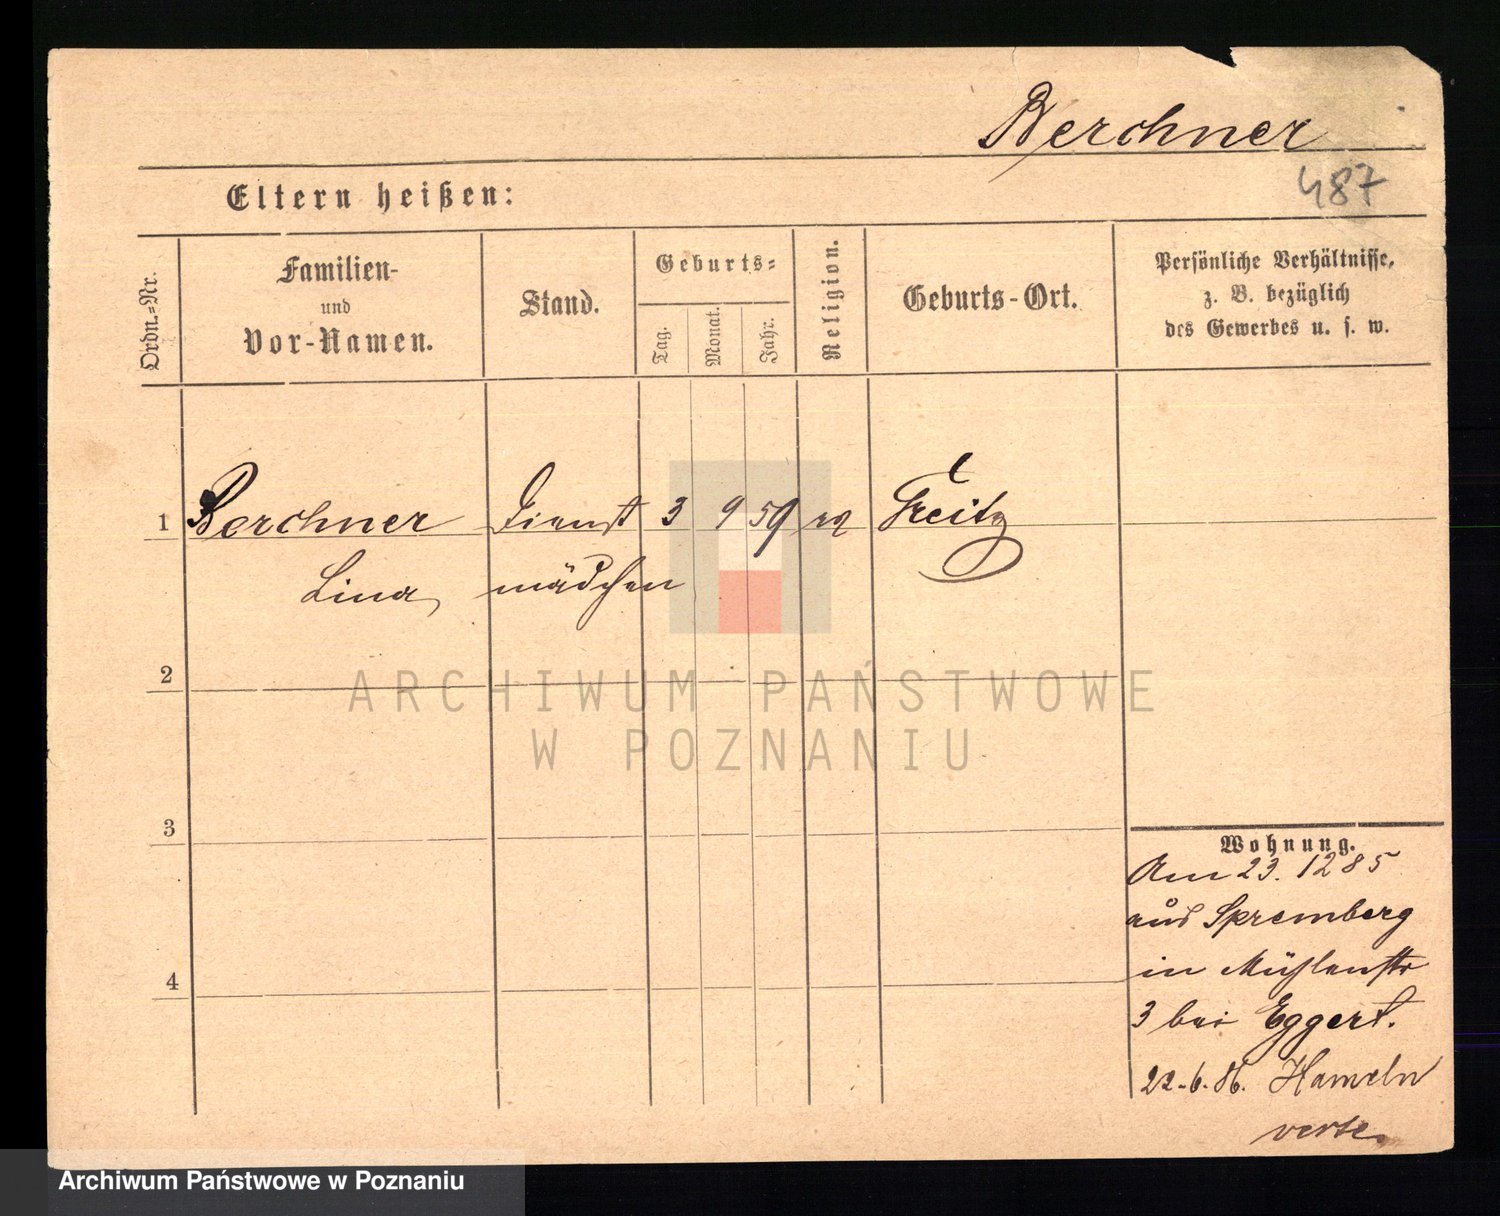 Berchner
487
Eltern heißen:
Ordn.-Nr.
Familien-
und
Vor-Namen.
Stand.
Geburts-
Tag.
Monat.
Jahr.
Religion.
Geburts-Ort.
Persönliche Verhältnisse,
z. B. bezüglich
des Gewerbes u. s. w.
1 Berchner Dienst 3 9 59
Lina mädchen
2
ARCHIWUM PAŃSTWOWE
W POZNANIU
3
4
Wohnung.
Am 23. 12 85
aus Spremberg
in Mühlenstr
3 bei Eggert.
22.6.86. Hameln
verte.
Archiwum Państwowe w Poznaniu